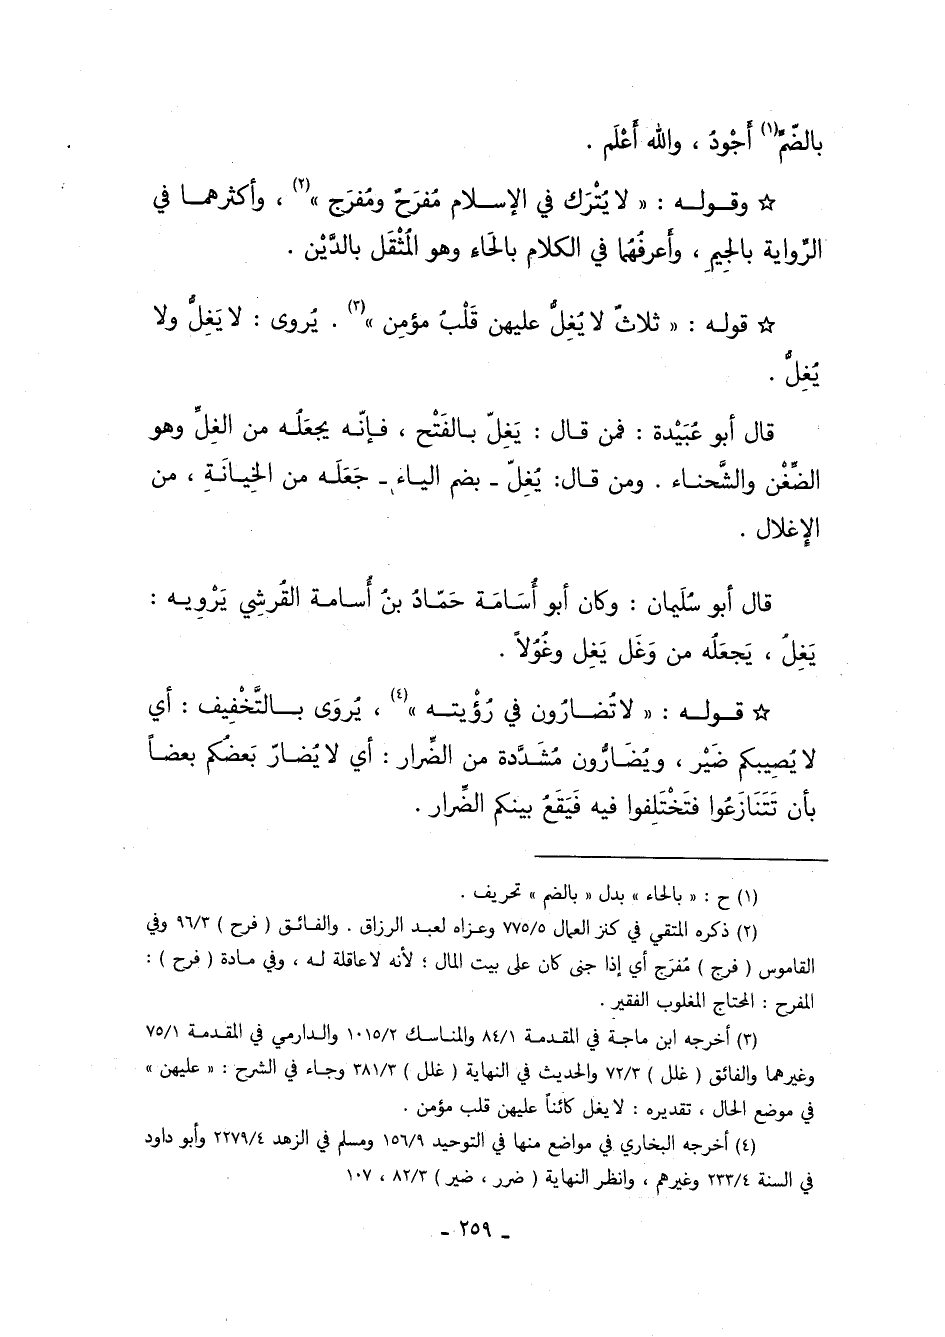 بالضّمّ(١) أَجْودُ ، والله أَعْلَم .
☆ وقـولـه : « لا يُتْرَك في الإسـلام مُفرَحٌ ومُفرَج »(٢) ، وأكثرهمـا في
الرِّواية بالجيمِ ، وأَعرفُهُما في الكلام بالحَاء وهو المُثْقَل بالدَّيْن .
☆ قولـه : « ثلاثٌ لا يُغِلُّ عليهن قَلْبُ مؤمِن »(٣) . يُروى : لا يَغِلُّ ولا
يُغِلُّ .
قال أبو عُبَيْدة : فمن قـال : يَغِلّ بـالفَتْح ، فـإنّـه يجعَلُـه من الغِلِّ وهو
الضِّغْن والشَّحنـاء . ومن قـال: يُغِلّ ـ بضم اليـاء ـ جَعَلَـه من الخِيـانَـةِ ، من
الإِغلال .
قال أبو سُلَيمان : وكان أبو أُسَامَـة حَمّـادُ بنُ أُسامـة القُرشِي يَرْوِيـه :
يَغِلُ ، يَجعَلُه من وَغَل يَغِل وغُوُلاً .
☆ قـولـه : « لا تُضـارُون في رُؤْيتـه »(٤) ، يُروَى بـالتَّخْفِيف : أي
لا يُصِيبكم ضَيْر ، ويُضَارُّون مُشَدَّدة من الضِّرار : أي لا يُضارّ بَعضُكم بعضـاً
بأن تَتَنَازَعُوا فتَخْتَلِفوا فيه فَيَقَعُ بينكم الضِّرار .
(١) ح : « بالحاء » بدل « بالضم » تحريف .
(٢) ذكره المتقي في كنز العمال ٧٧٥/٥ وعـزاه لعبـد الرزاق . والفـائـق ( فرح ) ٩٦/٣ وفي
القاموس ( فرج ) مُفرَج أي إذا جنى كان على بيت المال ؛ لأنه لا عاقلة لـه ، وفي مـادة ( فرح ) :
المفرح : المحتاج المغلوب الفقير .
(٣) أخرجه ابن ماجـة في المقـدمـة ٨٤/١ والمنـاسـك ١٠١٥/٢ والـدارمي في المقـدمـة ٧٥/١
وغيرهما والفائق ( غلل ) ٧٢/٣ والحديث في النهاية ( غلل ) ٣٨١/٣ وجاء في الشرح : « عليهن »
في موضع الحال ، تقديره : لا يغل كائناً عليهن قلب مؤمن .
(٤) أخرجـه البخاري في مواضع منها في التوحيد ١٥٦/٩ ومسلم في الزهد ٢٢٧٩/٤ وأبو داود
في السنة ٢٣٣/٤ وغيرهم ، وانظر النهاية ( ضرر ، ضير ) ٨٢/٣ ، ١٠٧
ـ ٢٥٩ ـ